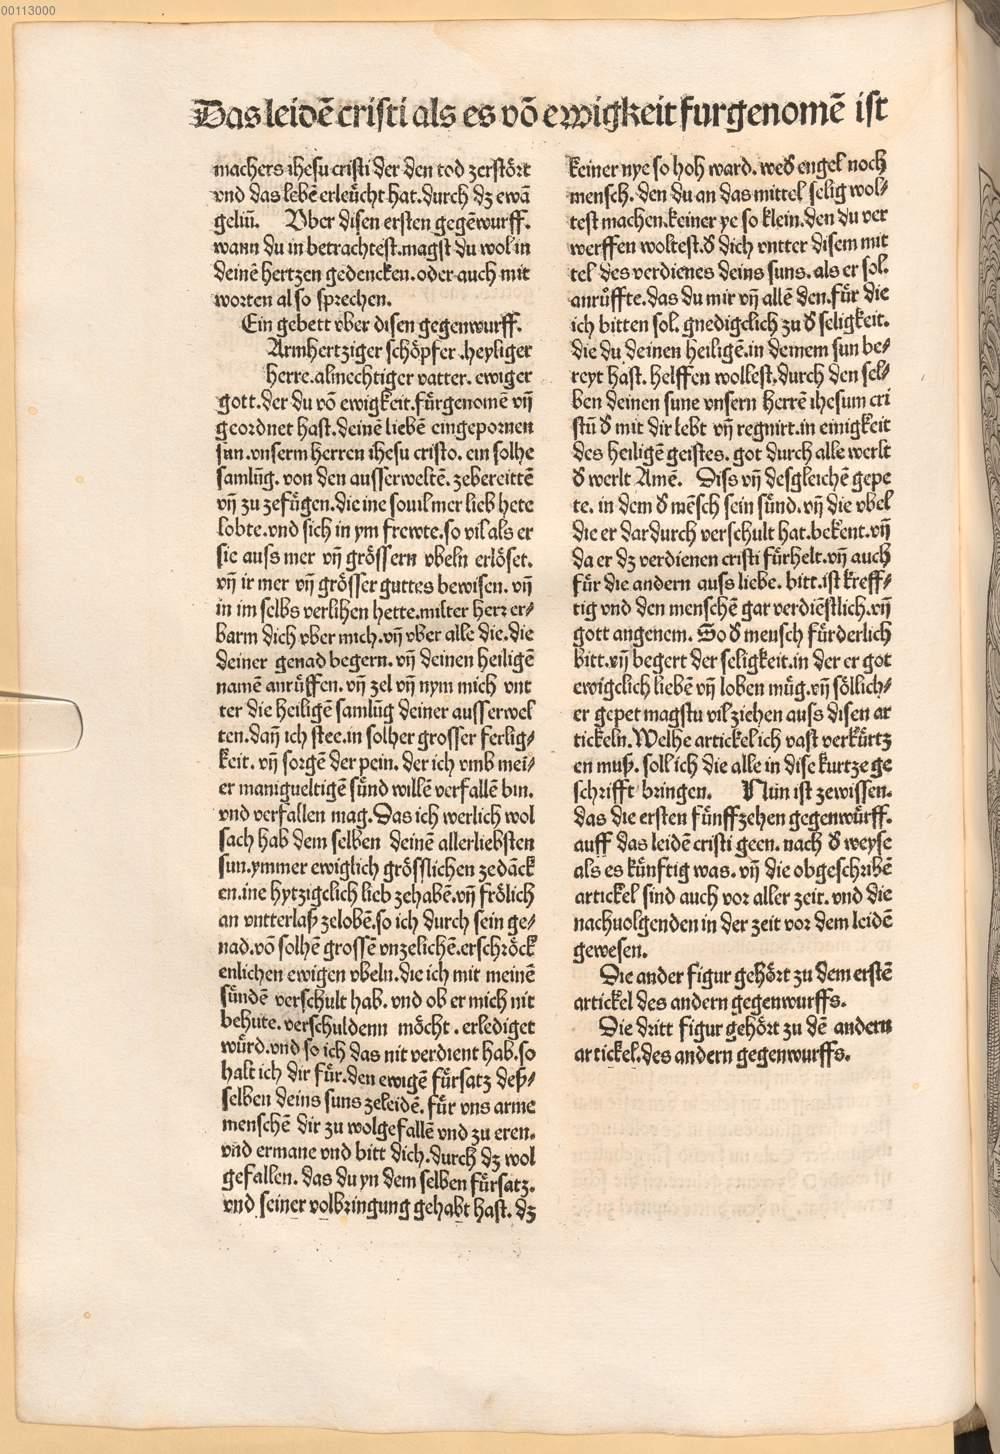 00113000
Das leidē cristi als es võ ewigkeit furgenomē ist
machers ihesu cristi der den tod zerstört
vnd das lebē erleücht hat. durch dz ewā
geliū. Vber disen ersten gegēwurff.
wann du in betrachtest. magst du wol in
deinē hertzen gedencken. oder auch mit
worten also sprechen.
Ein gebett vber disen gegenwurff.
Armhertziger schöpfer .heyliger
herre. almechtiger vatter. ewiger
gott. der du võ ewigkeit. fürgenomē vn̄
geordnet hast. deinē liebē eingepornen
sun. vnserm herren ihesu cristo. ein solhe
samlūg. von den ausserweltē. zebereittē
vn̄ zu zefügen. die ine souil mer lieb hete
lobte. vnd sich in ym frewte. so vil als er
sie auss mer vn̄ grössern vbeln erlöset.
vn̄ ir mer vn̄ grösser guttes bewisen. vn̄
in im selbs verlihen hette. milter herr er⸗
barm dich vber mich. vn̄ vber alle die. die
deiner genad begern. vn̄ deinen heiligē
namē anrüffen. vn̄ zel vn̄ nym mich vnt
ter die heiligē samlūg deiner ausserwel
ten. dan̄ ich stee. in solher grosser ferlig⸗
keit. vn̄ sorgē der pein. der ich vmb mei⸗
er manigueltigē sünd willē verfallē bin.
vnd verfallen mag. Das ich werlich wol
sach hab dem selben deinē allerliebsten
sun. ymmer ewiglich grösslichen zedāck
en. ine hytzigclich lieb zehabē. vn̄ frölich
an vntterlaß zelobē. so ich durch sein ge⸗
nad. võ solhē grossē vnzelichē. erschröck
enlichen ewigen vbeln. die ich mit meinē
sündē verschult hab. vnd ob er mich nit
behute. verschuldenn möcht. erlediget
würd. vnd so ich das nit verdient hab. so
halt ich dir für. den ewigē fürsatz deß⸗
selben deins suns zeleidē. für vns arme
menschē dir zu wolgefallē vnd zu eren.
vnd ermane vnd bitt dich. durch dz wol
gefallen. das du yn dem selben fürsatz.
vnd seiner volbringung gehabt hast. dz
keiner nye so hoh ward. wed̄ engel noch
mensch. den du an das mittel selig wol⸗
test machen. keiner ye so klein. den du ver
werffen woltest. d̄ dich vntter disem mit
tel des verdienes deins suns. als er sol.
anrüffte. das du mir vn̄ allē den. für die
ich bitten sol. gnedigclich zu d̄ seligkeit.
die du deinen heiligē. in deinem sun be⸗
reyt hast. helffen wollest. durch den sel⸗
ben deinen sune vnsern herrē ihesum cri
stū d̄ mit dir lebt vn̄ regnirt. in einigkeit
des heiligē geistes. got durch alle werlt
d̄ werlt Amē. Diss vn̄ desgleichē gepe
te. in dem d̄ mēsch sein sünd. vn̄ die vbel
die er dardurch verschult hat. bekent. vn̄
da er dz verdienen cristi fürhelt. vn̄ auch
für die andern auss liebe. bitt. ist kreff⸗
tig vnd den menschē gar verdiēstlich. vn̄
gott angenem. So d̄ mensch fürderlich
bitt. vn̄ begert der seligkeit. in der er got
ewigclich liebē vn̄ loben müg. vn̄ söllich⸗
er gepet magstu vil ziehen auss disen ar
tickeln. Welhe artickel ich vast verkürtz
en muß. soll ich die alle in dise kurtze ge
schrifft bringen. Nun ist zewissen.
das die ersten fünffzehen gegenwürff.
auff das leidē cristi geen. nach d̄ weyse
als es künftig was. vn̄ die obgeschribē
artickel sind auch vor aller zeit. vnd die
nachuolgenden in der zeit vor dem leidē
gewesen.
Die ander figur gehört zu dem erstē
artickel des andern gegenwurffs.
Die dritt figur gehört zu dē andern
artickel. des andern gegenwurffs.